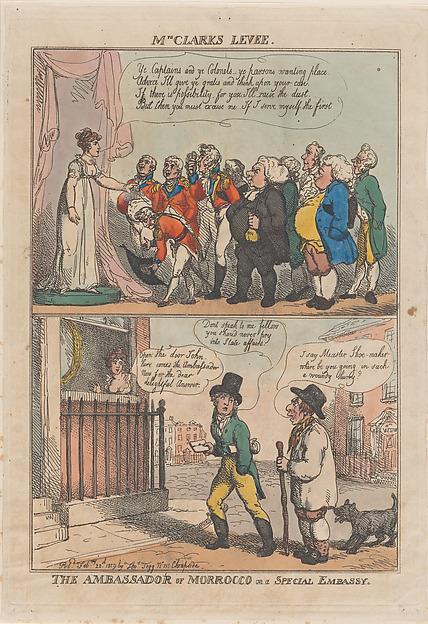 Mrs CLARKS LEVEE.
Ye Captains and ye Colonels — ye parsons wanting place
Advice I'll give ye gratis and think upon your case
If there is possibility, for you I'll raise the dust.
But then you must excuse me If I serve myself the first
Dont speak to me fellow
you should never pry
into State affairs
Open the door John.
here comes the Ambassador
Now for the dear
delightful Answer.
I say Measter Shoe-maker
where be you going in such
a woundy Hurry?
Pubd Feby 22d 1809 by Thos Tegg No 111 Cheapside
THE AMBASSADOR OF MORROCCO on a SPECIAL EMBASSY.